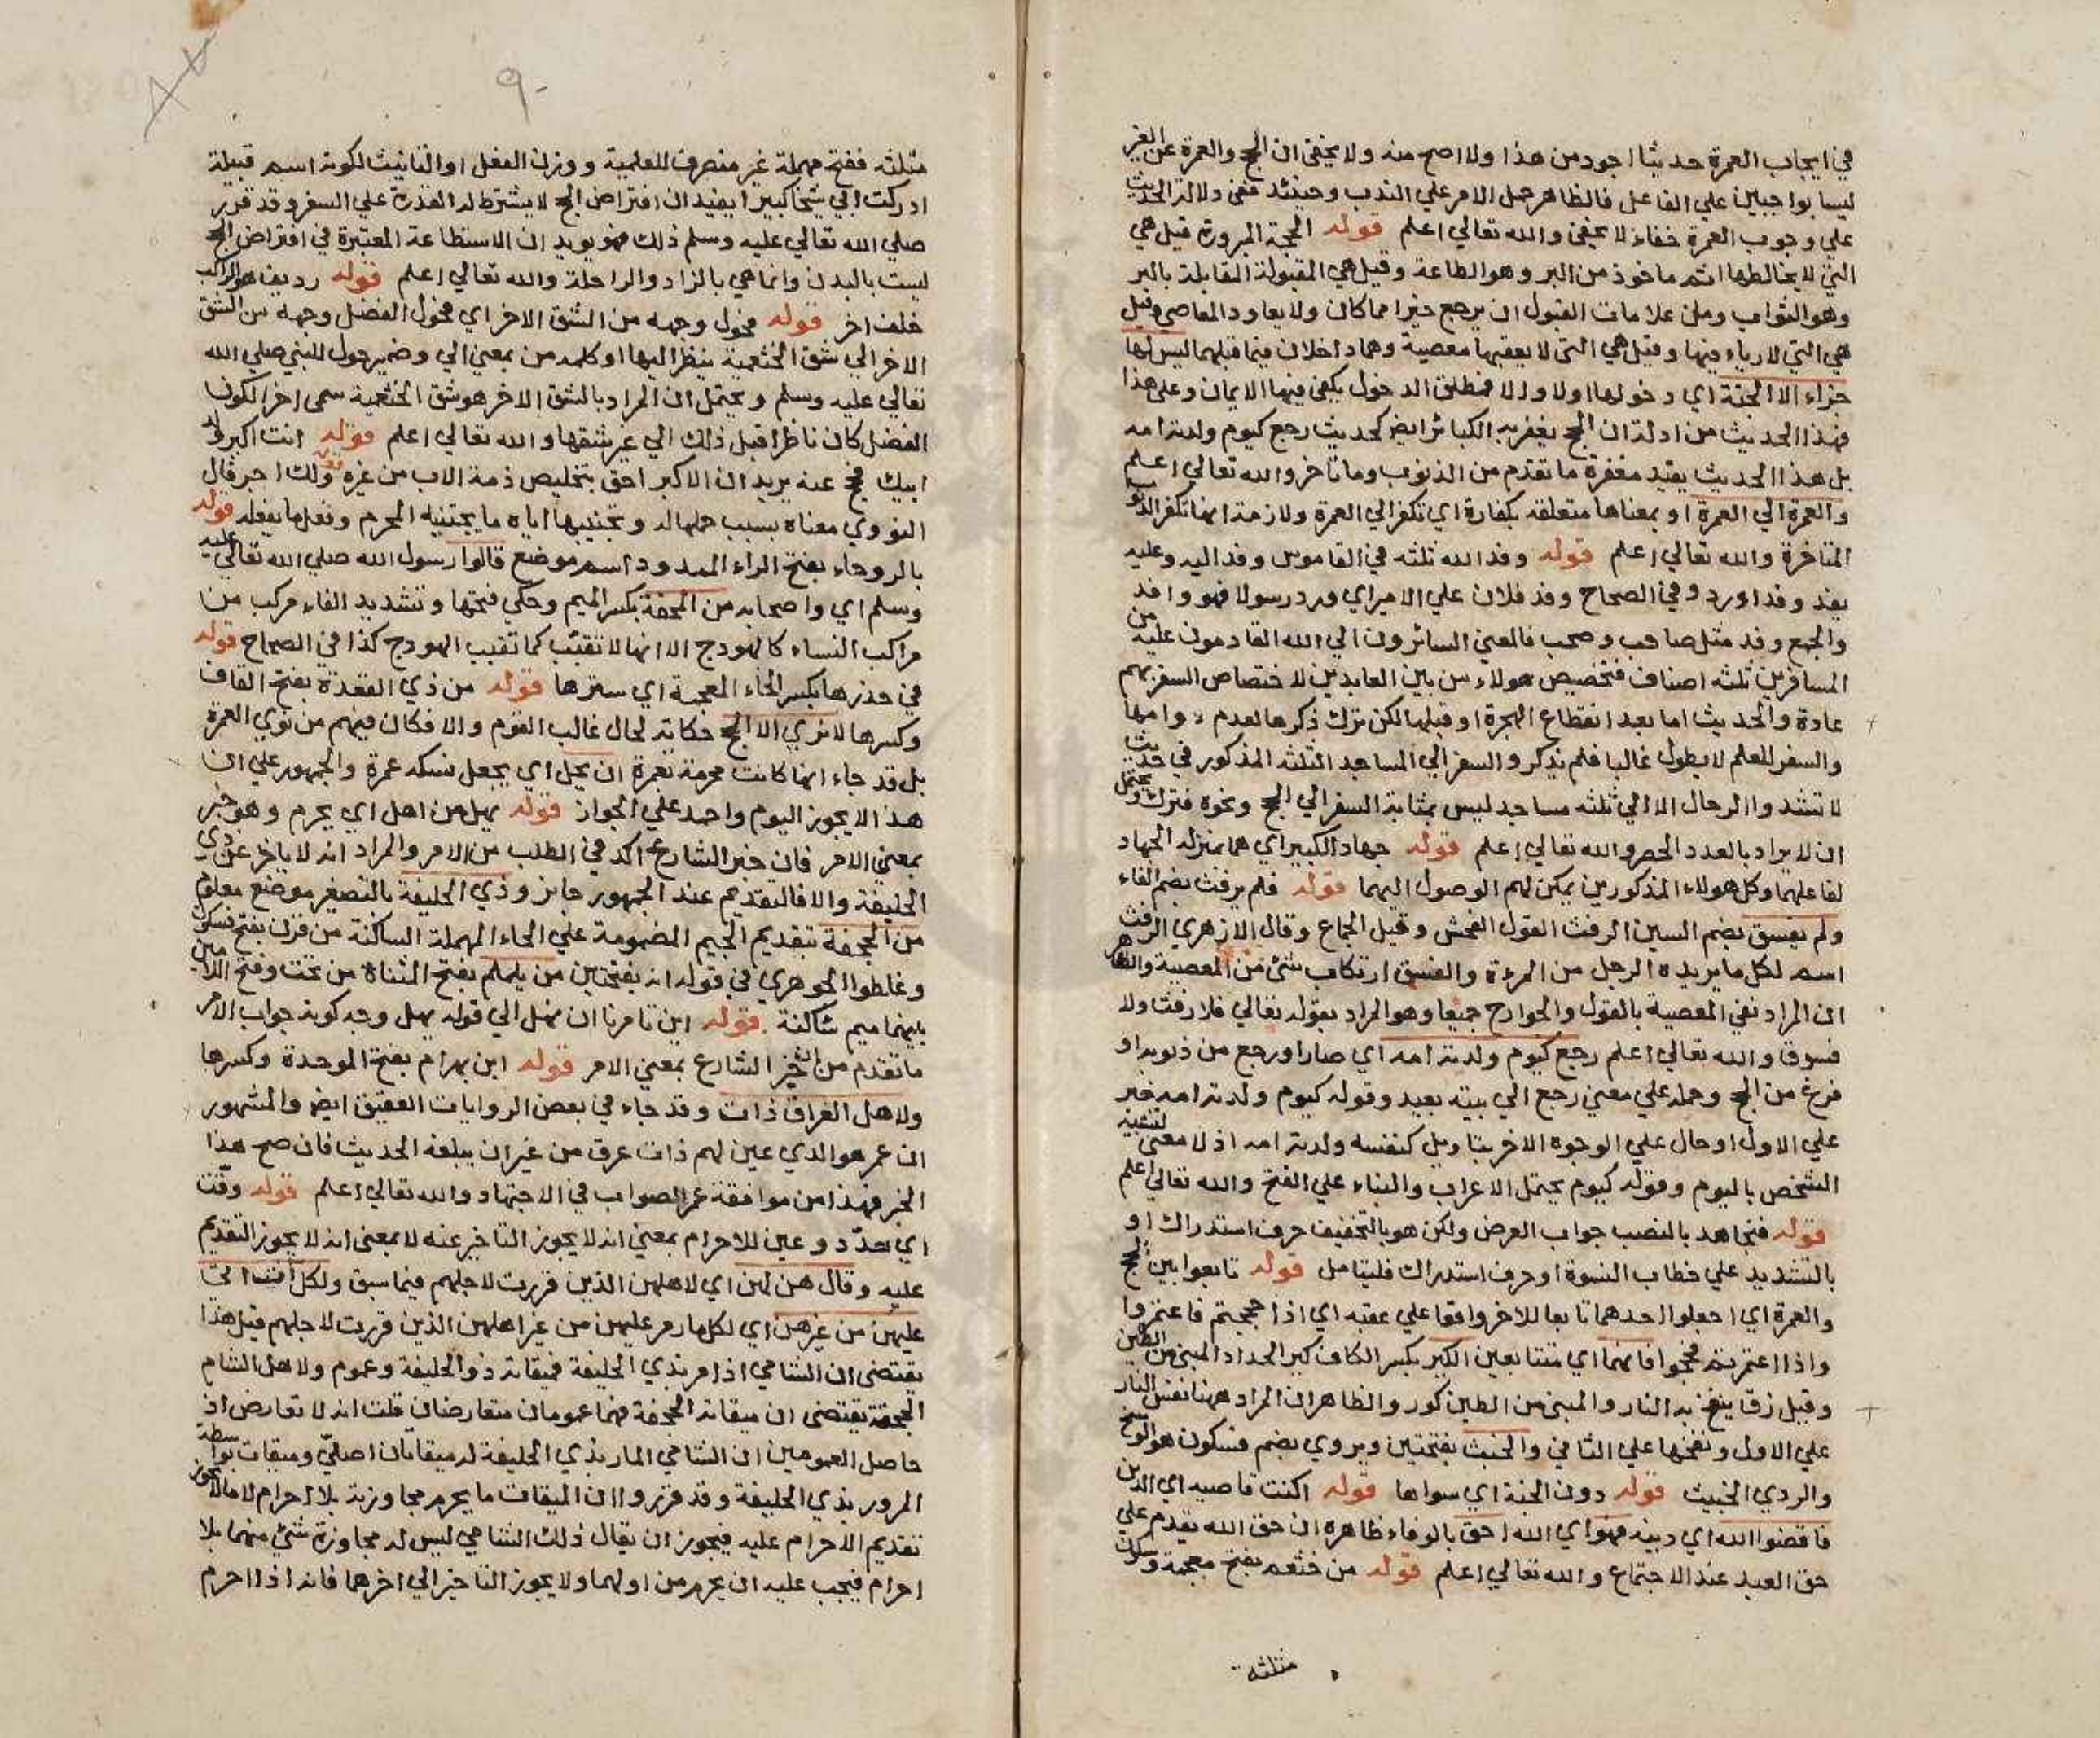 في ايجاب العمرة حديثا اجود من هذا ولا اصح منه ولا يخفى ان الحج والعمرة عن الغير
ليسا بواجبين علي الفاعل فالظاهر حمل الامر علي الندب وحينئذ ففي دلالة الحديث
علي وجوب العمرة خفاء لا يخفى والله تعالي اعلم قوله الحجة المبرورة قيل هي
التي لا يخالطها اثم ماخوذ من البر وهو الطاعة وقيل هي المقبولة المقابلة بالبر
وهو الثواب ومن علامات القبول ان يرجع خيرا مما كان ولا يعاود المعاصي وقيل
هي التي لا رياء فيها وقيل هي التي لا يعقبها معصية وهما داخلان فيما قبلهما ليس لها
جزاء الا الجنة اي دخولها اولا والا فمطلق الدخول يكفي فيها الايمان وعلي هذا
فهذا الحديث من ادلة ان الحج يغفر به الكبائر ايض كحديث رجع كيوم ولدته امه
بل هذا الحديث يفيد مغفرة ما تقدم من الذنوب وما تاخر والله تعالي اعلم
والعمرة الي العمرة او بمعناها متعلقة بكفارة اي تكفر الي العمرة ولازمه انها تكفر الذنوب
المتاخرة والله تعالي اعلم قوله وفد الله ثلثه في القاموس وفد اليه وعليه
يفد وفدا ورد وفي الصحاح وفد فلان علي الامير اي ورد رسولا فهو وافد
والجمع وفد مثل صاحب وصحب فالمعني السائرون الي الله القادمون عليه من
المسافرين ثلثه اصناف فتخصيص هولاء من بين العابدين لاختصاص السفر بهم
عادة والحديث اما بعد انقطاع الهجرة او قبلها لكن ترك ذكرها لعدم دوامها
والسفر للعلم لا يطول غالبا فلم يذكر والسفر الي المساجد الثلثه المذكور في حديث
لا تشد الرحال الا الي ثلثه مساجد ليس بمثابة السفر الي الحج ونحوه فترك ويحتمل
ان لا يراد بالعدد الحصر والله تعالي اعلم قوله جهاد الكبير اي هما بمنزلة الجهاد
لفاعلهما وكل هولاء المذكورين يمكن لهم الوصول اليهما قوله فلم يرفث بضم الفاء
ولم يفسق بضم السين الرفث القول الفحش وقيل الجماع وقال الازهري الرفث
اسم لكل ما يريده الرجل من المرءة والفسق ارتكاب شئ من المعصية والظاهر
ان المراد نفي المعصية بالقول والجوارح جميعا وهو المراد بقوله تعالي فلا رفث ولا
فسوق والله تعالي اعلم رجع كيوم ولدته امه اي صار او رجع من ذنوبه او
فرغ من الحج وحمله علي معني رجع الي بيته بعيد وقوله كيوم ولدته امه خبر
علي الاول او حال علي الوجوه الاخر بتاويل كنفسه ولدته امه اذ لا معني لتشبيه
الشخص باليوم وقوله كيوم يحتمل الاعراب والبناء علي الفتح والله تعالي اعلم
قوله فنجاهد بالنصب جواب العرض ولكن هو بالتخفيف حرف استدراك او
بالتشديد علي خطاب النسوة او حرف استدراك فليتامل قوله تابعوا بين الحج
والعمرة اي اجعلوا احدهما تابعا للاخر واقعا علي عقبه اي اذا حججتم فاعتمروا
واذا اعتمرتم فحجوا فانهما اي متتابعين الكير بكسر الكاف كير الحداد المبني من الطين
وقيل زق ينفخ به النار والمبني من الطين كور والظاهر ان المراد ههنا نفس النار
علي الاول ونفخها علي الثاني والخبث بفتحتين ويروي بضم فسكون هو الوسخ
والردي الخبيث قوله دون الجنة اي سواها قوله اكنت قاضيه اي الدين
فاقضوا الله اي دينه فهو اي الله احق بالوفاء ظاهره ان حق الله يقدم علي
حق العبد عند الاجتماع والله تعالي اعلم قوله من خثعم بفتح معجمة وسكون
مثلثه
٩٠
مثلثه ففتح مهملة غير منصرف للعلمية ووزن الفعل او التانيث لكونه اسم قبيلة
ادركت ابي شيخا كبيرا يفيد ان افتراض الحج لا يشترط له القدرة علي السفر وقد قرر
صلي الله تعالي عليه وسلم ذلك فهو يويد ان الاستطاعة المعتبرة في افتراض الحج
ليست بالبدن وانما هي بالزاد والراحلة والله تعالي اعلم قوله رديف هو الراكب
خلف اخر قوله فحول وجهه من الشق الاخر اي فحول الفضل وجهه من الشق
الاخر الي شق الخثعمية ينظر اليها او كلمه من بمعني الي وضمير حول للنبي صلي الله
تعالي عليه وسلم ويحتمل ان المراد بالشق الاخر هو شق الخثعمية سمي اخر لكون
الفضل كان ناظرا قبل ذلك الي غير شقها والله تعالي اعلم قوله انت اكبر ولد
ابيك فحج عنه يريد ان الاكبر احق بتخليص ذمة الاب من غيره ولك اجر قال
النووي معناه بسبب حملها له وتجنيبها اياه ما يجتنبه المحرم وفعل ما يفعله قوله
بالروحاء بفتح الراء الممدود اسم موضع قالوا رسول الله صلي الله تعالي عليه
وسلم اي واصحابه من المحفة بكسر الميم وحكي فتحها وتشديد الفاء مركب من
مراكب النساء كالهودج الا انها لا تقبب كما تقبب الهودج كذا في الصحاح قوله
في خدرها بكسر الخاء المعجمة اي سترها قوله من ذي القعدة بفتح القاف
وكسرها لا نري الا الحج حكاية لحال غالب القوم والا فكان فيهم من نوي العمرة
بل قد جاء انها كانت محرمة بعمرة ان يحل اي يجعل نسكه عمرة والجمهور علي ان
هذا لا يجوز اليوم واحمد علي الجواز قوله يهل من اهل اي يحرم وهو خبر
بمعني الامر فان خبر الشارع اكد في الطلب من الامر والمراد انه لا ياخر عن ذي
الحليفة والا فالتقديم عند الجمهور جايز وذي الحليفة بالتصغير موضع معلوم
من الجحفة بتقديم الجيم المضمومة علي الحاء المهملة الساكنة من قرن بفتح فسكون
وغلطوا الجوهري في قوله انه بفتحتين من يلملم بفتح المثناة من تحت وفتح اللامين
بينهما ميم ساكنة قوله اين تامرنا ان نهل الي قوله يهل وجه كونه جواب الامر
ما تقدم من ان خبر الشارع بمعني الامر قوله ابن بهرام بفتح الموحدة وكسرها
ولاهل العراق ذات وقد جاء في بعض الروايات العقيق ايض والمشهور
ان عمر هو الذي عين لهم ذات عرق من غير ان يبلغه الحديث فان صح هذا
الخبر فهذا من موافقة عمر الصواب في الاجتهاد والله تعالي اعلم قوله وقت
اي حدد وعين للاحرام بمعني انه لا يجوز التاخير عنه لا بمعني انه لا يجوز التقديم
عليه وقال هن لهن اي لاهلهن الذين قررت لاجلهم فيما سبق ولكل آت اتي
عليهن من غيرهن اي لكل مار مر عليهن من غير اهلهن الذين قررت لاجلهم قيل هذا
يقتضي ان الشامي اذا مر بذي الحليفة فميقاته ذو الحليفة وعموم ولاهل الشام
الجحفة يقتضي ان ميقاته الجحفة فهما عمومان متعارضان قلت انه لا تعارض اذ
حاصل العمومين ان الشامي المار بذي الحليفة له ميقاتان اصلي وميقات بواسطة
المرور بذي الحليفة وقد قرروا ان الميقات ما يحرم مجاوزته بلا احرام لا ما لا يجوز
تقديم الاحرام عليه فيجوز ان يقال ذلك الشامي ليس له مجاوزة شئ منهما بلا
احرام فيجب عليه ان يحرم من اولهما ولا يجوز التاخير الي اخرهما فانه اذا احرم